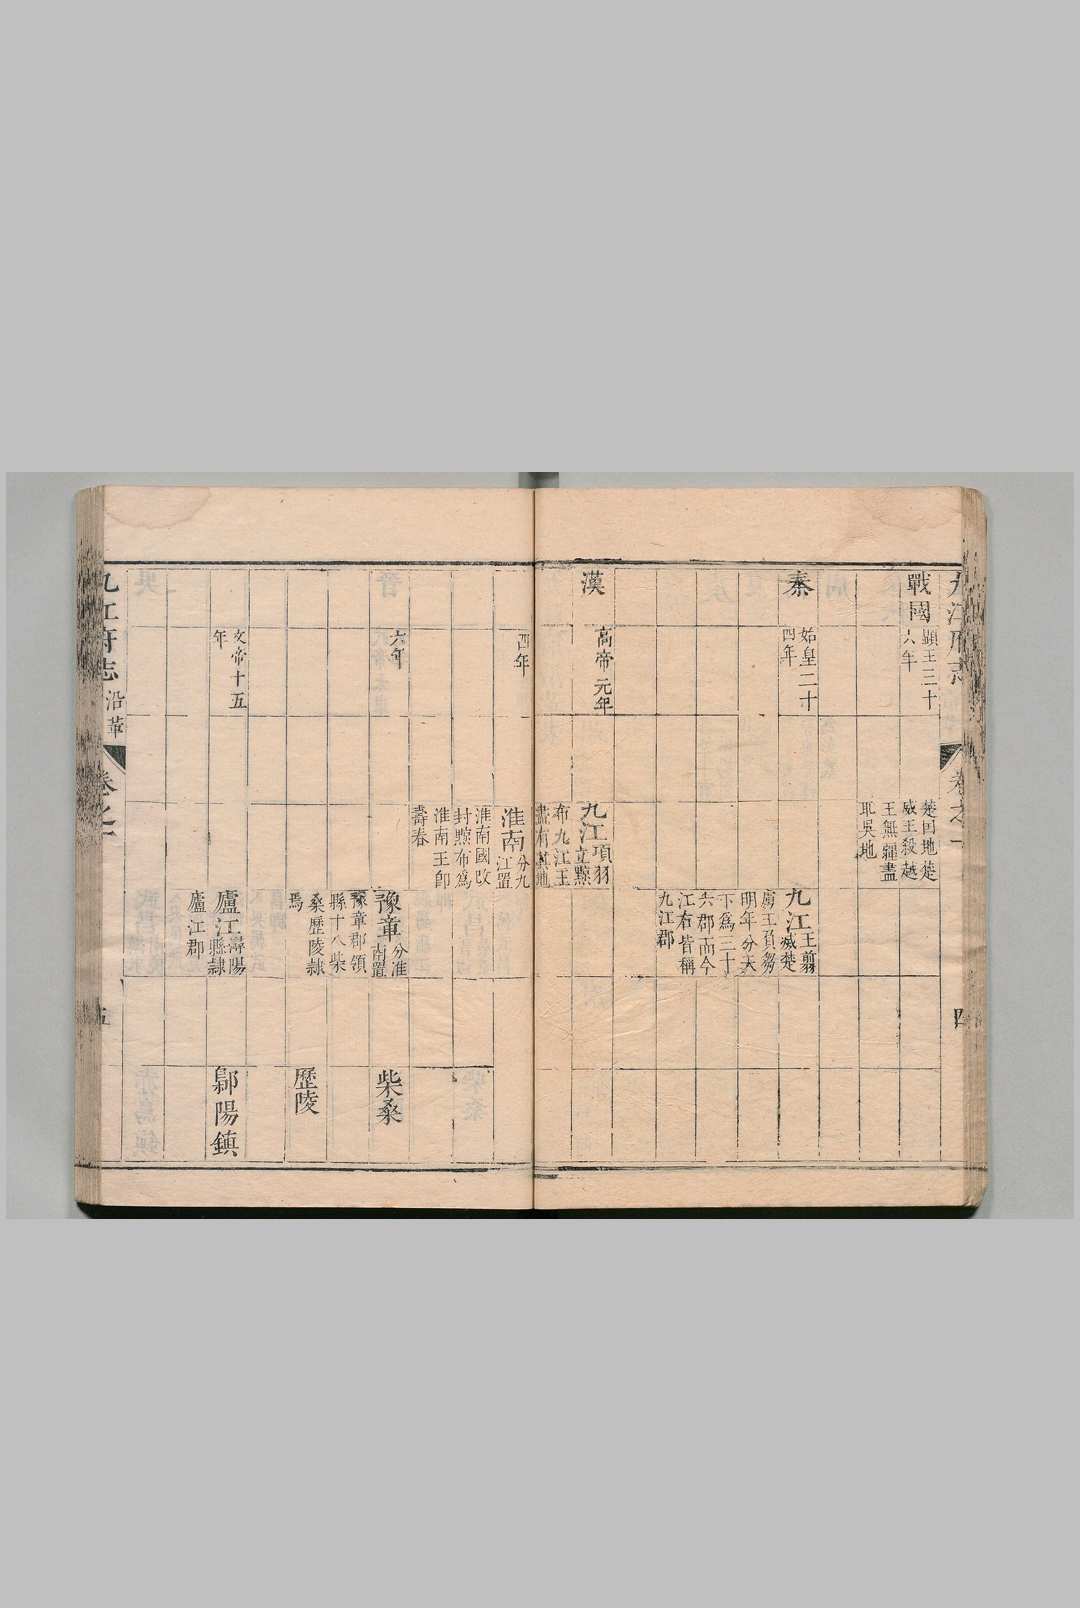 九江府志
卷之一
四
戰國
顯王三十
六年
楚回地楚
威王殺越
王無疆盡
取吳地
秦
始皇二十
四年
九江王翦
滅楚
虜王負芻
明年分天
下為三十
六郡而今
江右皆稱
九江郡
漢
高帝元年
九江項羽
立黥
布九江王
盡有其地
四年
淮南分九
江置
淮南國改
封黥布為
淮南王即
壽春
六年
豫章分淮
南置
豫章郡領
縣十八柴
桑歷陵隷
焉
柴桑
歷陵
文帝十五
年
廬江潯陽
縣隷
廬江郡
鄡陽鎮
九江府志
沿革
卷之一
五